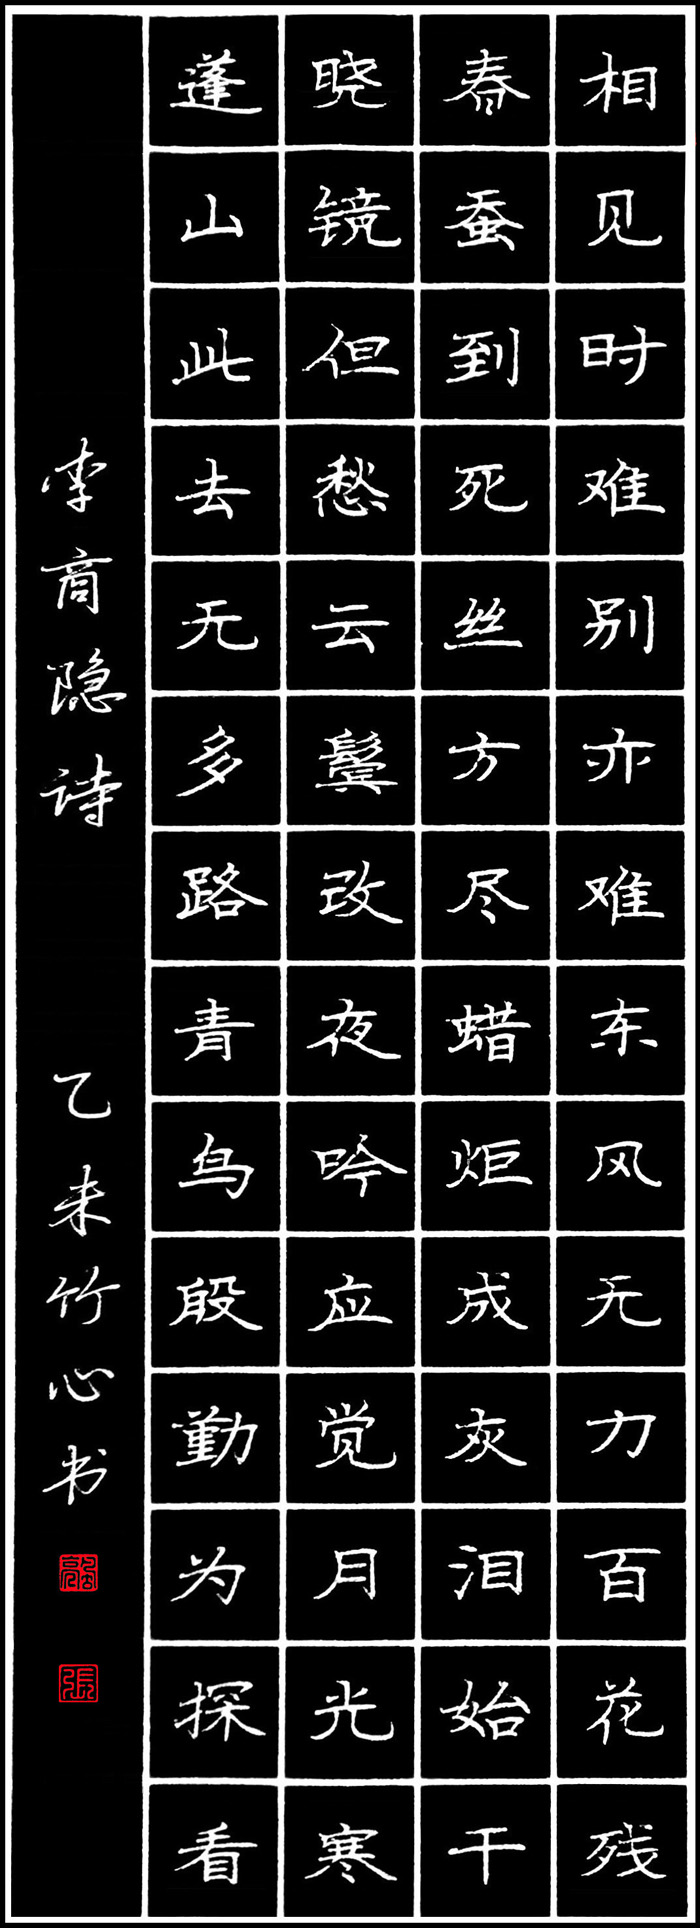 相见时难别亦难东风无力百花残
春蚕到死丝方尽蜡炬成灰泪始干
晓镜但愁云鬓改夜吟应觉月光寒
蓬山此去无多路青鸟殷勤为探看
李商隐诗 乙未竹心书
張